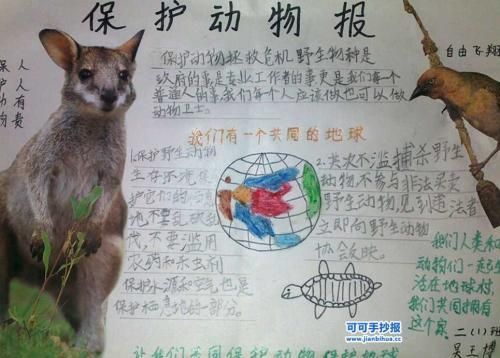 保护动物报
保护动物拯救危机野生物种是
政府的事是专业工作者的事更是我们每一个
普通人的事我们每个人应该做也可以做
动物卫士。
自由飞翔
保护动物
人人有责
我们有一个共同的地球
1.保护野生动物
生存环境
护它们的
地,不要乱砍
伐,不要滥用
农药和杀虫剂
保护水源和空气也是
保护栖息地的一部分。
2.其次不滥捕杀野生
动物,不参与非法买卖
野生动物,见到违法者
立即向野生动物
协会反映。
我们人类和
动物们一起生
活在地球村
我们共同拥有
这个家
二(1)班
可可手抄报
www.jianbihua.cc
让我们共同保护动物保护地球